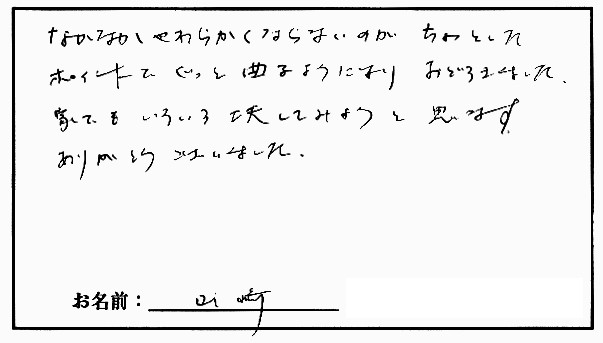 なかなかやわらかくならないのが ちょっとした
ポイントで ぐっと曲るようになり おどろきました.
家でも いろいろ工夫してみようと思います
ありがとうございました.
お名前：